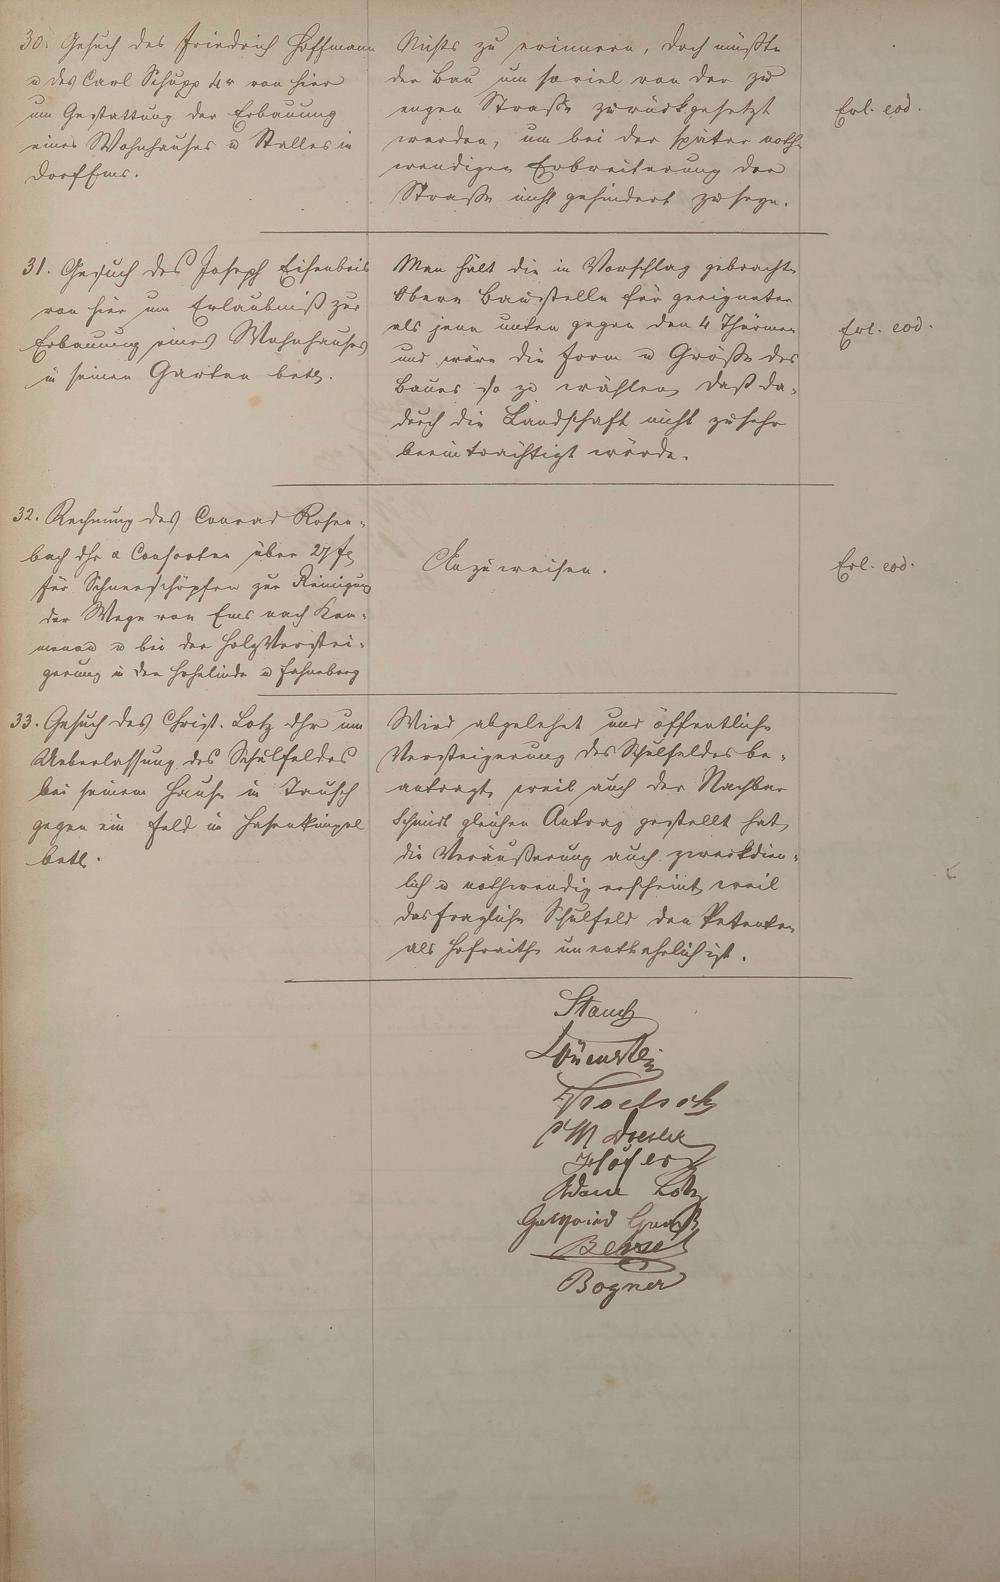 30. Gesuch des Friedrich Hoffmann
u des Carl Schupp 4r von hier
um Gestattung der Erbauung
eines Wohnhauses u Stalles in
Dorf Ems.
Nichts zu erinnern, doch müßte
der Bau um so viel von der zu
engen Straße zurückgesetzt
werden, um bei der später noth-
wendigen Erbreiterung der
Straße nicht gehindert zu seyn.
Erl. eod.
31. Gesuch des Joseph Eisenbeis
von hier um Erlaubniß zur
Erbauung eines Wohnhauses
in seinen Garten betr.
Man hält die in Vorschlag gebrachte
obere Baustelle für geeigneter
als jene unten gegen den 4 Thürmen
und wäre die Form u Größe des
Baues so zu wählen, daß da-
durch die Landschaft nicht zu sehr
beeinträchtigt würde.
Erl. eod.
32. Rechnung des Conrad Rosen-
bach dhr & Consorten über 27 f
für Schneeschöpfen zur Reinigung
der Wege von Ems nach Kem-
menau u bei der Holzverstei-
gerung in den Hohelinde u Hahnerberg
Anzuweisen.
Erl. eod.
33. Gesuch des Christ. Lotz dhr um
Ueberlassung des Schulfeldes
bei seinem Hause in Tausch
gegen ein Feld in Hasenkümpel
betr.
Wird abgelehnt und öffentliche
Versteigerung des Schulfeldes be-
antragt, weil auch der Nachbar
Schmidt gleichen Antrag gestellt hat,
die Veräußerung auch zweckdien-
lich u nothwendig erscheint, weil
das fragliche Schulfeld den Petenten
als Hofraithe unentbehrlich ist.
Stauch
Löwenstein
Troelsch
Höfer
Adam Lotz
Gottfried
Benzel
Bogner